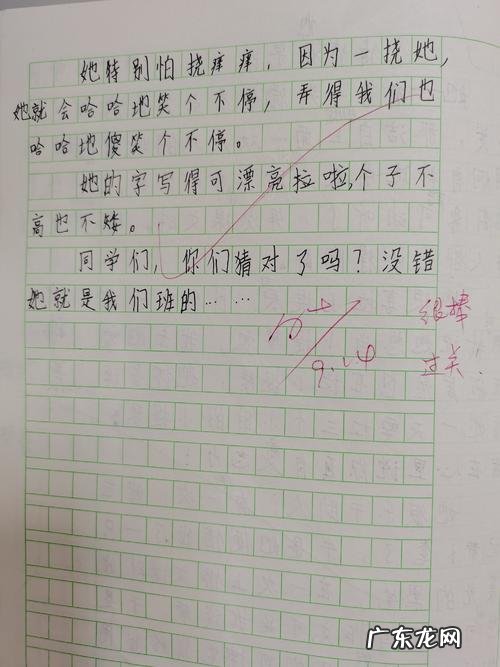 她特别怕挠痒痒，因为一挠她，
她就会哈哈地笑个不停，弄得我们也
哈哈地傻笑个不停。
她的字写得可漂亮拉啦，个子不
高也不矮。
同学们，你们猜对了吗？没错
她就是我们班的……
很棒
9.14
过关！
广东龙网